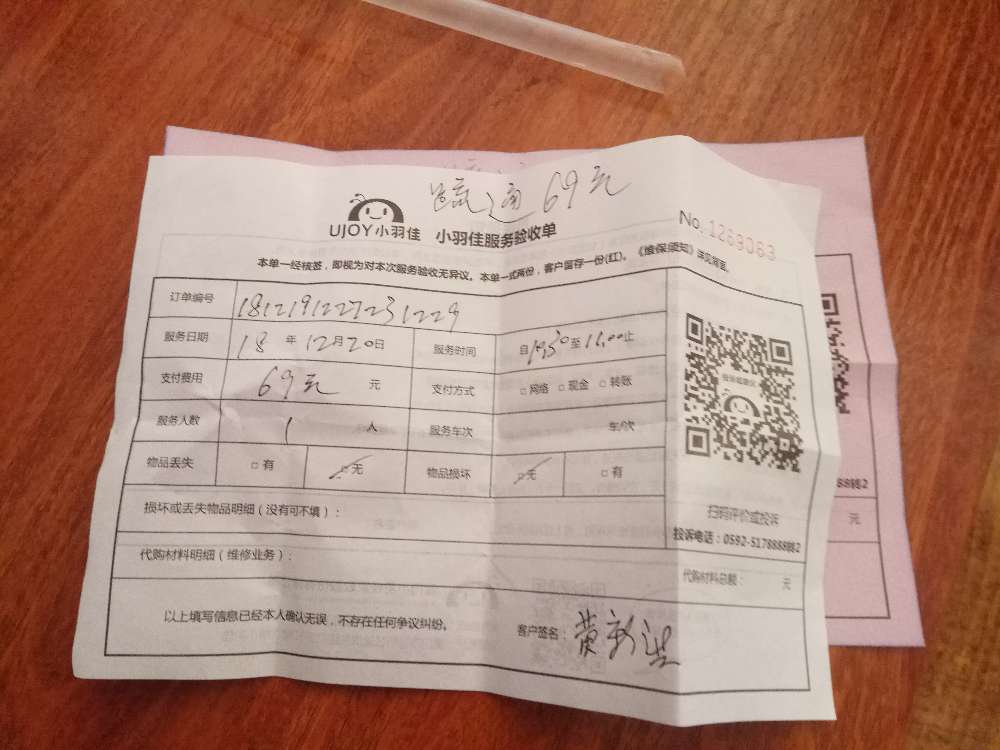 疏通 69元
UJOY小羽佳 小羽佳服务验收单 No. 1269063
本单一经核签，即视为对本次服务验收无异议。本单一式两份，客户留存一份(红)。《维保须知》详见背面。
订单编号 181219122723 1229
服务日期 18 年 12月20日 服务时间 自10:30至11:00止
支付费用 69元 元 支付方式 □网络 □现金 □转账
服务人数 1 人 服务车次 车/次
物品丢失 □有 □无 物品损坏 □无 □有
损坏或丢失物品明细（没有可不填）：
扫码评价或投诉
投诉电话：0592-5178888转2
代购材料明细（维修业务）： 代购材料总额： 元
以上填写信息已经本人确认无误，不存在任何争议纠纷。 客户签名：黄新
88转2
元